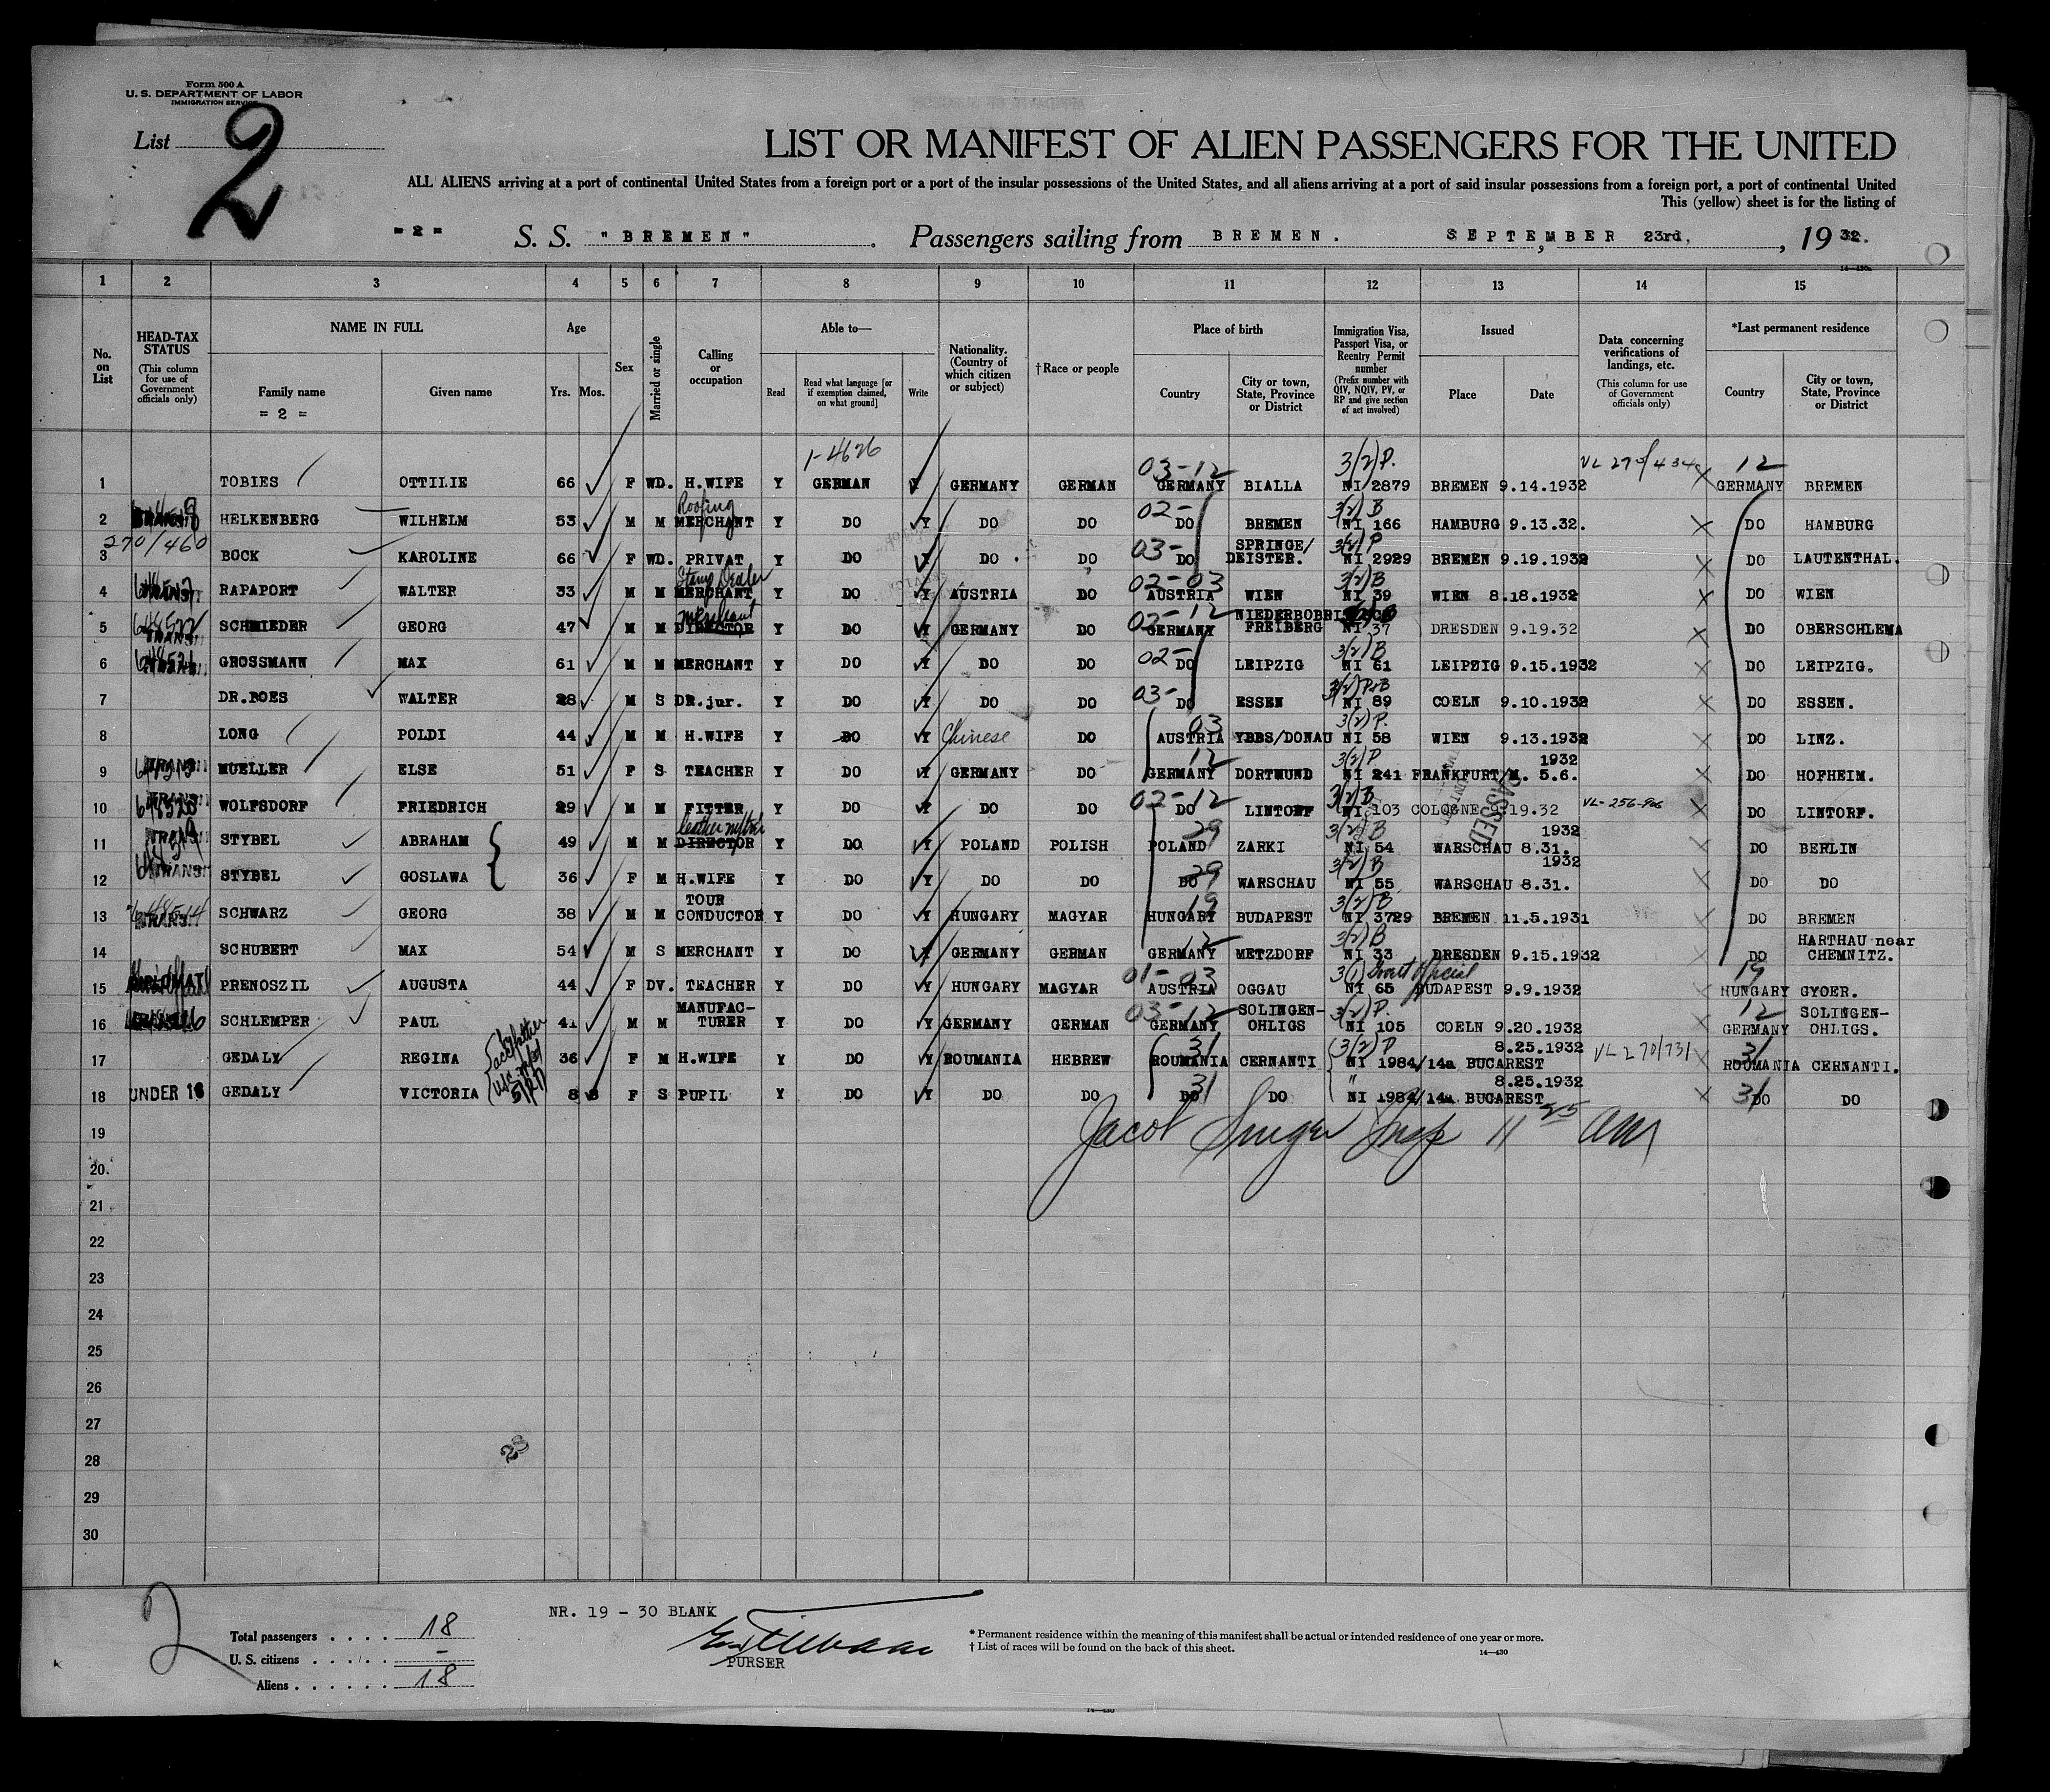 Form 500 A
U. S. DEPARTMENT OF LABOR
IMMIGRATION SERVICE
List 2
LIST OR MANIFEST OF ALIEN PASSENGERS FOR THE UNITED
ALL ALIENS arriving at a port of continental United States from a foreign port or a port of the insular possessions of the United States, and all aliens arriving at a port of said insular possessions from a foreign port, a port of continental United
This (yellow) sheet is for the listing of
= 2 = S. S. "BREMEN". Passengers sailing from BREMEN. SEPTEMBER 23rd, , 19 32.
14—430a
1 2 3 4 5 6 7 8 9 10 11 12 13 14 15
No. on List
HEAD-TAX STATUS (This column for use of Government officials only)
NAME IN FULL
Family name Given name
= 2 =
Age
Yrs. Mos.
Sex
Married or single
Calling or occupation
Able to—
Read
Read what language [or if exemption claimed, on what ground]
Write
Nationality. (Country of which citizen or subject)
† Race or people
Place of birth
Country
City or town, State, Province or District
Immigration Visa, Passport Visa, or Reentry Permit number (Prefix number with QIV, NQIV, PV, or RP and give section of act involved)
Issued
Place Date
Data concerning verifications of landings, etc. (This column for use of Government officials only)
*Last permanent residence
Country
City or town, State, Province or District
1-4626 03-12 3(2)P. 12
1 TOBIES OTTILIE 66 F WD. H.WIFE Y GERMAN Y GERMANY GERMAN GERMANY BIALLA NI 2879 BREMEN 9.14.1932 GERMANY BREMEN
Roofing 02- 3(2)B
2 HELKENBERG WILHELM 53 M M MERCHANT Y DO Y DO DO DO BREMEN NI 166 HAMBURG 9.13.32. DO HAMBURG
270/460 03- 3(2)P
3 BOCK KAROLINE 66 F WD. PRIVAT Y DO Y DO DO DO SPRINGE/DEISTER. NI 2929 BREMEN 9.19.1932 DO LAUTENTHAL.
Stamp Dealer 02-03 3(2)B
4 RAPAPORT WALTER 33 M M MERCHANT Y DO Y AUSTRIA DO AUSTRIA WIEN NI 39 WIEN 8.18.1932 DO WIEN
merchant 02-12
5 SCHMIEDER GEORG 47 M M DIRECTOR Y DO Y GERMANY DO GERMANY FREIBERG NI 37 DRESDEN 9.19.32 DO OBERSCHLEMA
02- 3(2)B
6 GROSSMANN MAX 61 M M MERCHANT Y DO Y DO DO DO LEIPZIG NI 61 LEIPZIG 9.15.1932 DO LEIPZIG.
03-
7 DR.ROES WALTER 28 M S DR.jur. Y DO Y DO DO DO ESSEN NI 89 COELN 9.10.1932 DO ESSEN.
03 3(2)P.
8 LONG POLDI 44 M M H.WIFE Y DO Y Chinese DO AUSTRIA YBBS/DONAU NI 58 WIEN 9.13.1932 DO LINZ.
12 3(2)P
9 MUELLER ELSE 51 F S TEACHER Y DO Y GERMANY DO GERMANY DORTMUND NI 241 FRANKFURT/M. 5.6. 1932 DO HOFHEIM.
02-12 3(2)B
10 WOLFSDORF FRIEDRICH 29 M M FITTER Y DO Y DO DO DO LINTORF NI 103 COLOGNE 9.19.32 DO LINTORF.
29 3(2)B
11 STYBEL ABRAHAM 49 M M DIRECTOR Y DO Y POLAND POLISH POLAND ZARKI NI 54 WARSCHAU 8.31. 1932 DO BERLIN
29 3(2)B
12 STYBEL GOSLAWA 36 F M H.WIFE Y DO Y DO DO DO WARSCHAU NI 55 WARSCHAU 8.31. 1932 DO DO
19 3(2)B
13 SCHWARZ GEORG 38 M M TOUR CONDUCTOR Y DO Y HUNGARY MAGYAR HUNGARY BUDAPEST NI 3729 BREMEN 11.5.1931 DO BREMEN
12 3(2)B
14 SCHUBERT MAX 54 M S MERCHANT Y DO Y GERMANY GERMAN GERMANY METZDORF NI 33 DRESDEN 9.15.1932 DO HARTHAU near CHEMNITZ.
01-03 3(1) Govt official 19
15 PRENOSZIL AUGUSTA 44 F DV. TEACHER Y DO Y HUNGARY MAGYAR AUSTRIA OGGAU NI 65 BUDAPEST 9.9.1932 HUNGARY GYOER.
03-12 3(2)P. 12
16 SCHLEMPER PAUL 41 M M MANUFACTURER Y DO Y GERMANY GERMAN GERMANY SOLINGEN-OHLIGS NI 105 COELN 9.20.1932 GERMANY SOLINGEN-OHLIGS.
31 3(2)P VL 270/731 31
17 GEDALY REGINA 36 F M H.WIFE Y DO Y ROUMANIA HEBREW ROUMANIA CERNANTI NI 1984/14a BUCAREST 8.25.1932 ROUMANIA CERNANTI.
31 " 31
18 UNDER 16 GEDALY VICTORIA 8 F S PUPIL Y DO Y DO DO DO DO NI 1984/14a BUCAREST 8.25.1932 DO DO
PASSED
Jacob Singer Insp 11 25 AM
19
20.
21
22
23
24
25
26
27
28
29
30
28
NR. 19 - 30 BLANK
2
Total passengers . . . . 18
U. S. citizens . . . . . -
Aliens . . . . . . 18
PURSER
* Permanent residence within the meaning of this manifest shall be actual or intended residence of one year or more.
† List of races will be found on the back of this sheet.
14—430